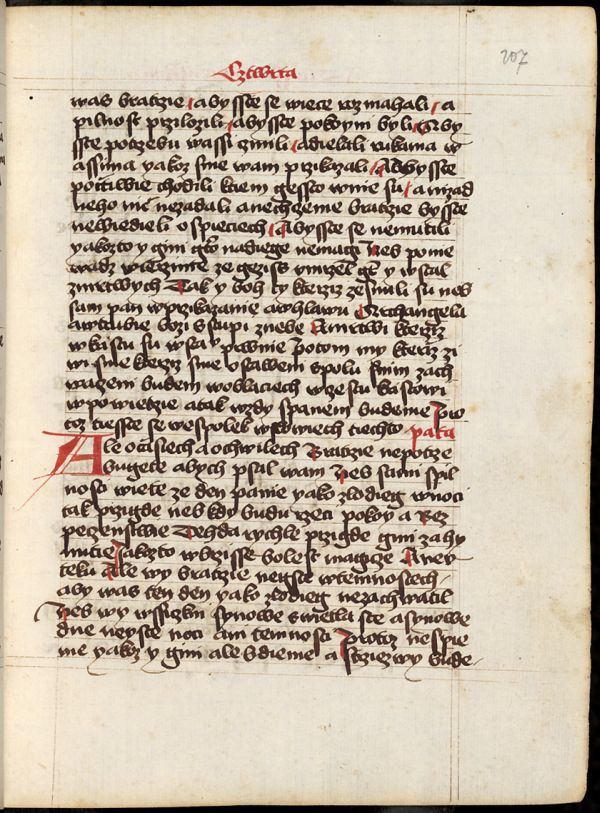 207
Cztwrta
was bratrzie / abysste se wiece rozmahali / a
pilnost przilozili / abysste pokoyni byli / Aby
sste potrzebu wassi czinili / adielali rukama w
assima yakoz sme wam przikazali / Abysste
poctiwie chodili ktiem gessto wnie su / a nizad
neho nic nezadali anechzeme bratrzie bysste
newiedieli o spiecziech / Abysste se nemutili
yakozto y gini gto nadiege nemagi Nes poniē
wadz wierzimie ze gezis vmrzel gt y wstal
zmrtwych Tak y boh ty kterziz zesnuli su nes
sam pan wprzikazanie awhlawu Archangelu
awtrubie bozi sstupi znebe Amrtwi kterziz
wkristu su wsta prwnie Potom my kterziz zi
wi sme kterziz sme ostaweni spolu snim zach
waczeni budem woblaciech wrzestu kristowi
wpowietrzie atak wzdy spanem budeme Pro
toz tiesste se wespolek wslowiech tiechto pata
Ale o czasiech a ochwilech Bratrzie nepotrze
bugete abych psal wam Nes sami spil
nosti wiete ze den panie yako zlodieg wnoci
tak przigde nes kdy budu rzeci pokoy a Bez
peczenstwie Tehda rychle przigde gim zahy
nutie Jakozto wbrzisse bolest magicze Aney
teku Ale wy bratrzie neysste wtemnostech
aby was ten den yako zlodieg nezachwatil
Nes wy wssiczkni synowe swietla ste a synowe
dne neyste noci ani temnosti Protoz nespie
me yakoz y gini ale bdieme a strziezwy bude